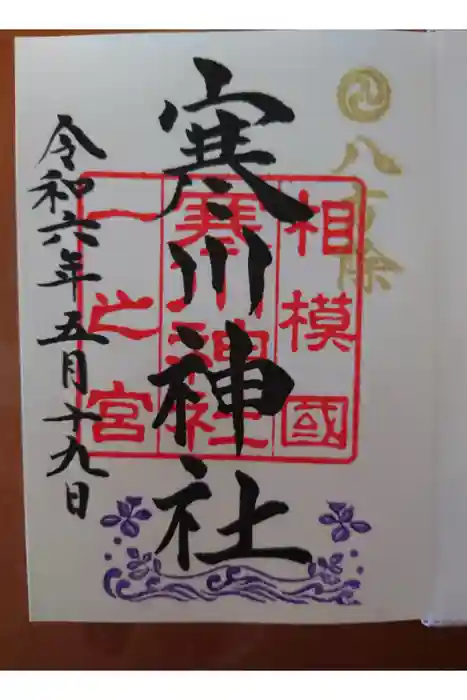 八方除
寒川神社
相模國
寒川神社
一之宮
令和六年五月十九日